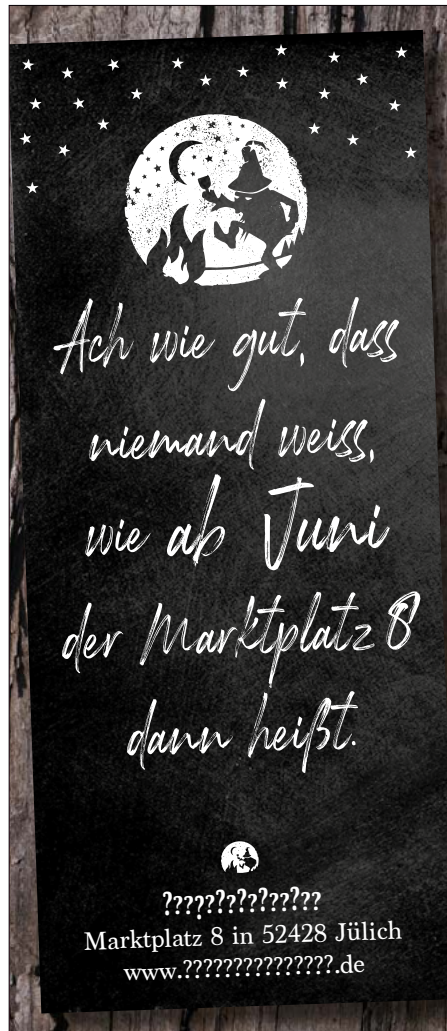 Ach wie gut, dass
niemand weiss,
wie ab Juni
der Marktplatz 8
dann heißt.
???????????????
Marktplatz 8 in 52428 Jülich
www.???????????????.de